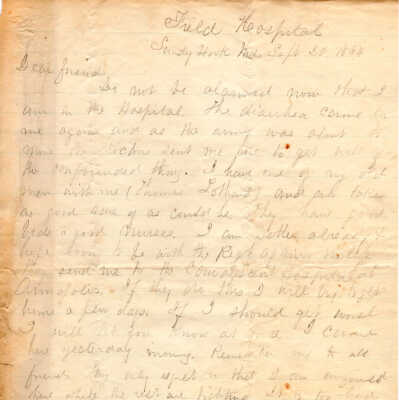 Field Hospital
Sandy Hook Md. Sept 20 1864
Dear friend
Do not be alarmed now that I
am in the Hospital. The diarrhea came on
me again and as the army was about to
move the Doctor sent me here to get well of
the confounded thing. I have one of my old
men with me (Thomas and are taken
as good care of as could be. They have good
beds & good nurses. I am better already &
hope soon to be with the Regt again unless
they send me to the Convalescent Hospital at
Annapolis. If they do this I will
home a few days. If I should get worse
I will let you know at once I came
here yesterday morning. Remember me to all
friends My only regret is that I am
here while the rest are fighting